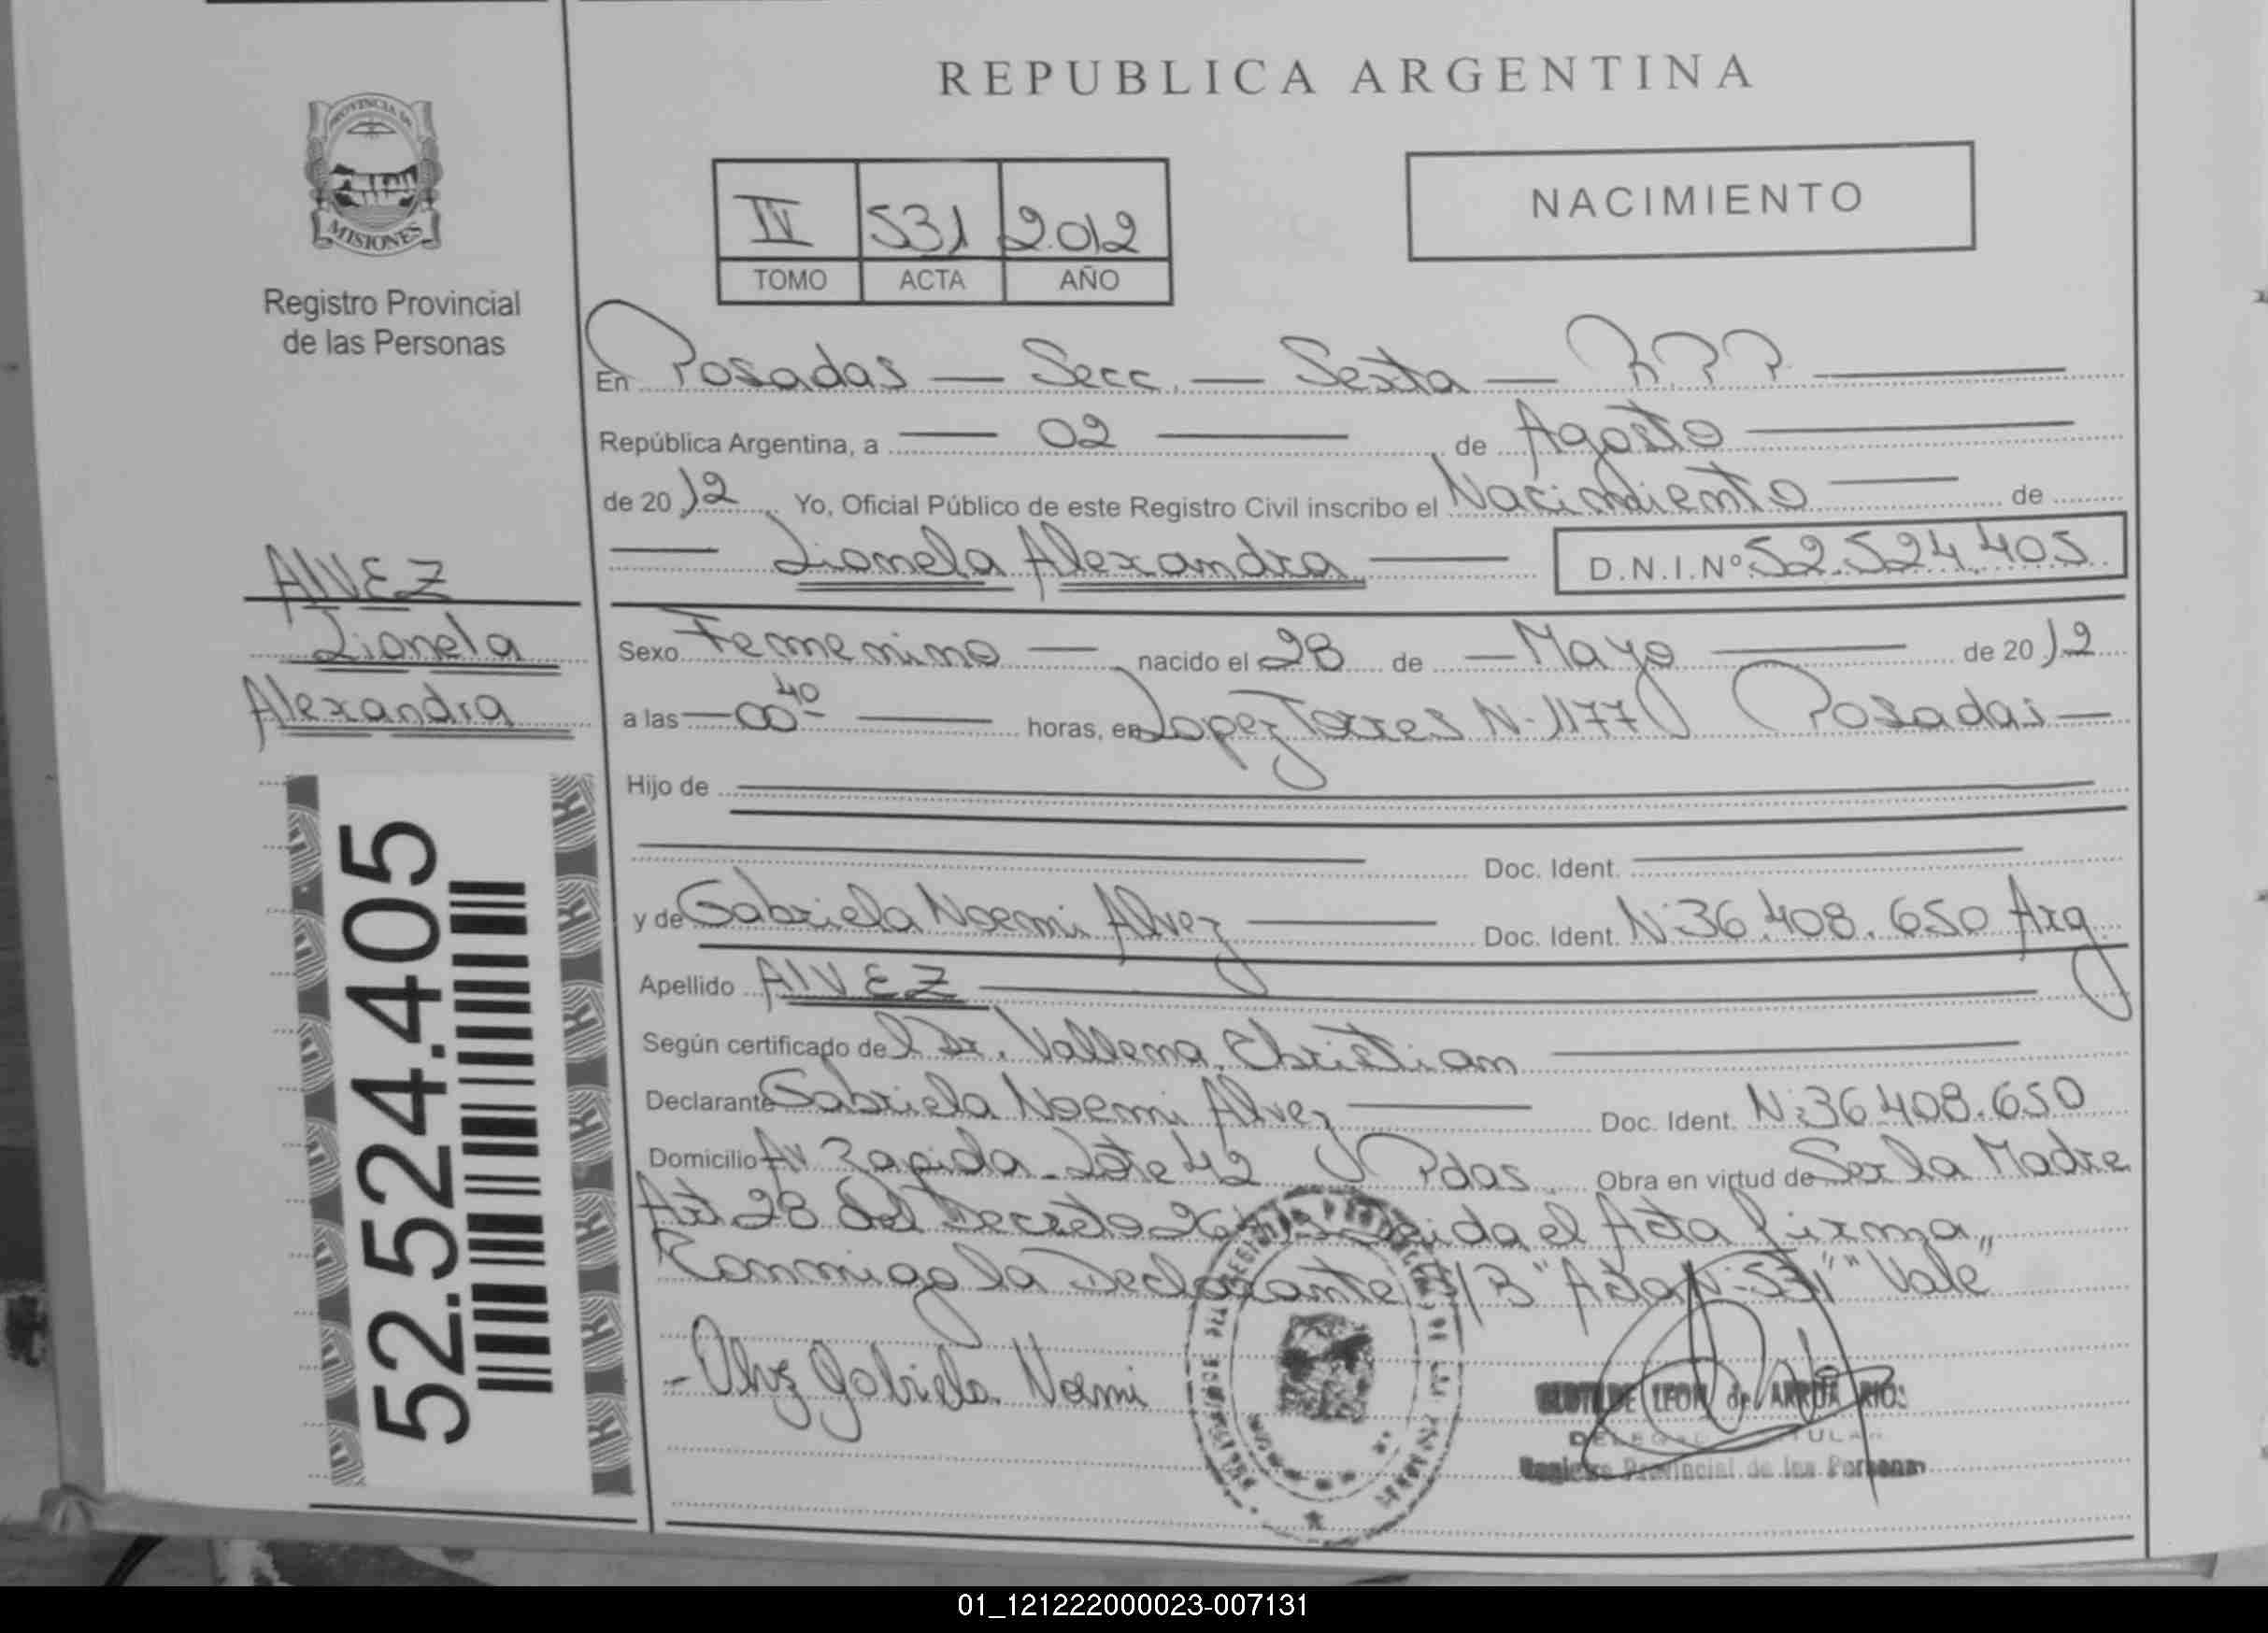 REPUBLICA ARGENTINA
PROVINCIA DE
MISIONES
Registro Provincial
de las Personas
IV 531 2012
TOMO ACTA AÑO
NACIMIENTO
En Posadas — Secc. — Sexta — R.P.P.
República Argentina, a — 02 — de Agosto
de 2012 Yo, Oficial Público de este Registro Civil inscribo el Nacimiento — de
— Lionela Alexandra — D.N.I.Nº 52.524.405
ALVEZ
Lionela
Alexandra
52.524.405
Sexo Femenino — nacido el 28 de — Mayo — de 2012
a las — 00 40 — horas, en Lopez Torres N-1177 Posadas —
Hijo de
Doc. Ident.
y de Gabriela Noemi Alvez — Doc. Ident. N:36.408.650 Arg
Apellido ALVEZ
Según certificado del Dr. Christian
Declarante Gabriela Noemi Alvez — Doc. Ident. N:36.408.650
Domicilio Av Rapida - Lote 42 Pdas. Obra en virtud de Ser la Madre
Art 28 del Decreto el Acta firma
Conmigo la Declarante "Acta N:531" "Vale"
- Alvez Gabriela Noemi
CLOTILDE LEON de ARRUA RIOS
DELEGADA TITULAR
Registro Provincial de las Personas
01_121222000023-007131